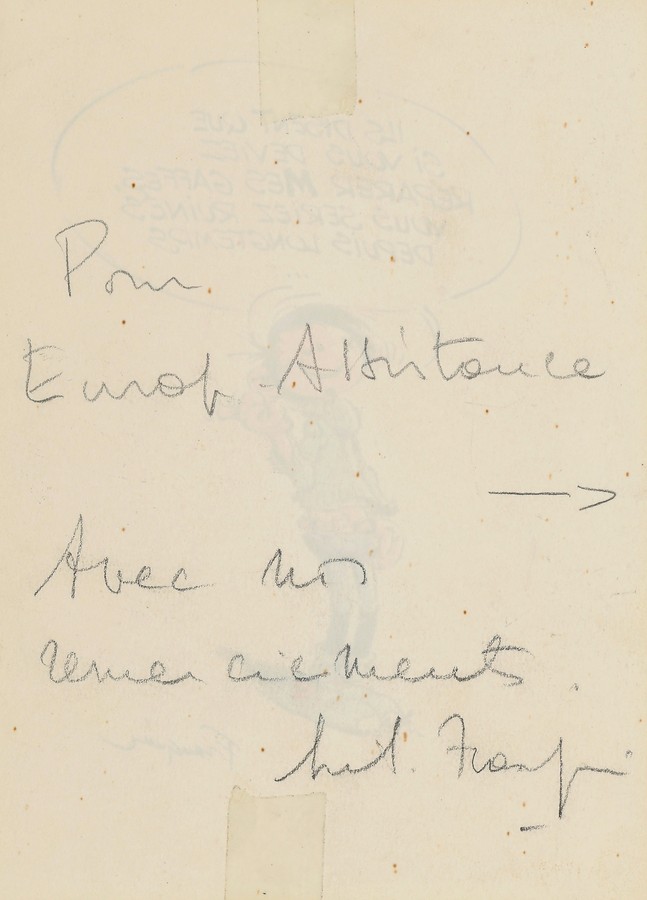 ILS DISENT QUE
SI VOUS DEVIEZ
RÉPARER MES GAFFES,
VOUS SERIEZ RUINÉS
DEPUIS LONGTEMPS
Pour
Europ Assistance
→
Avec nos
remerciements.
Lil. Franquin
Franquin